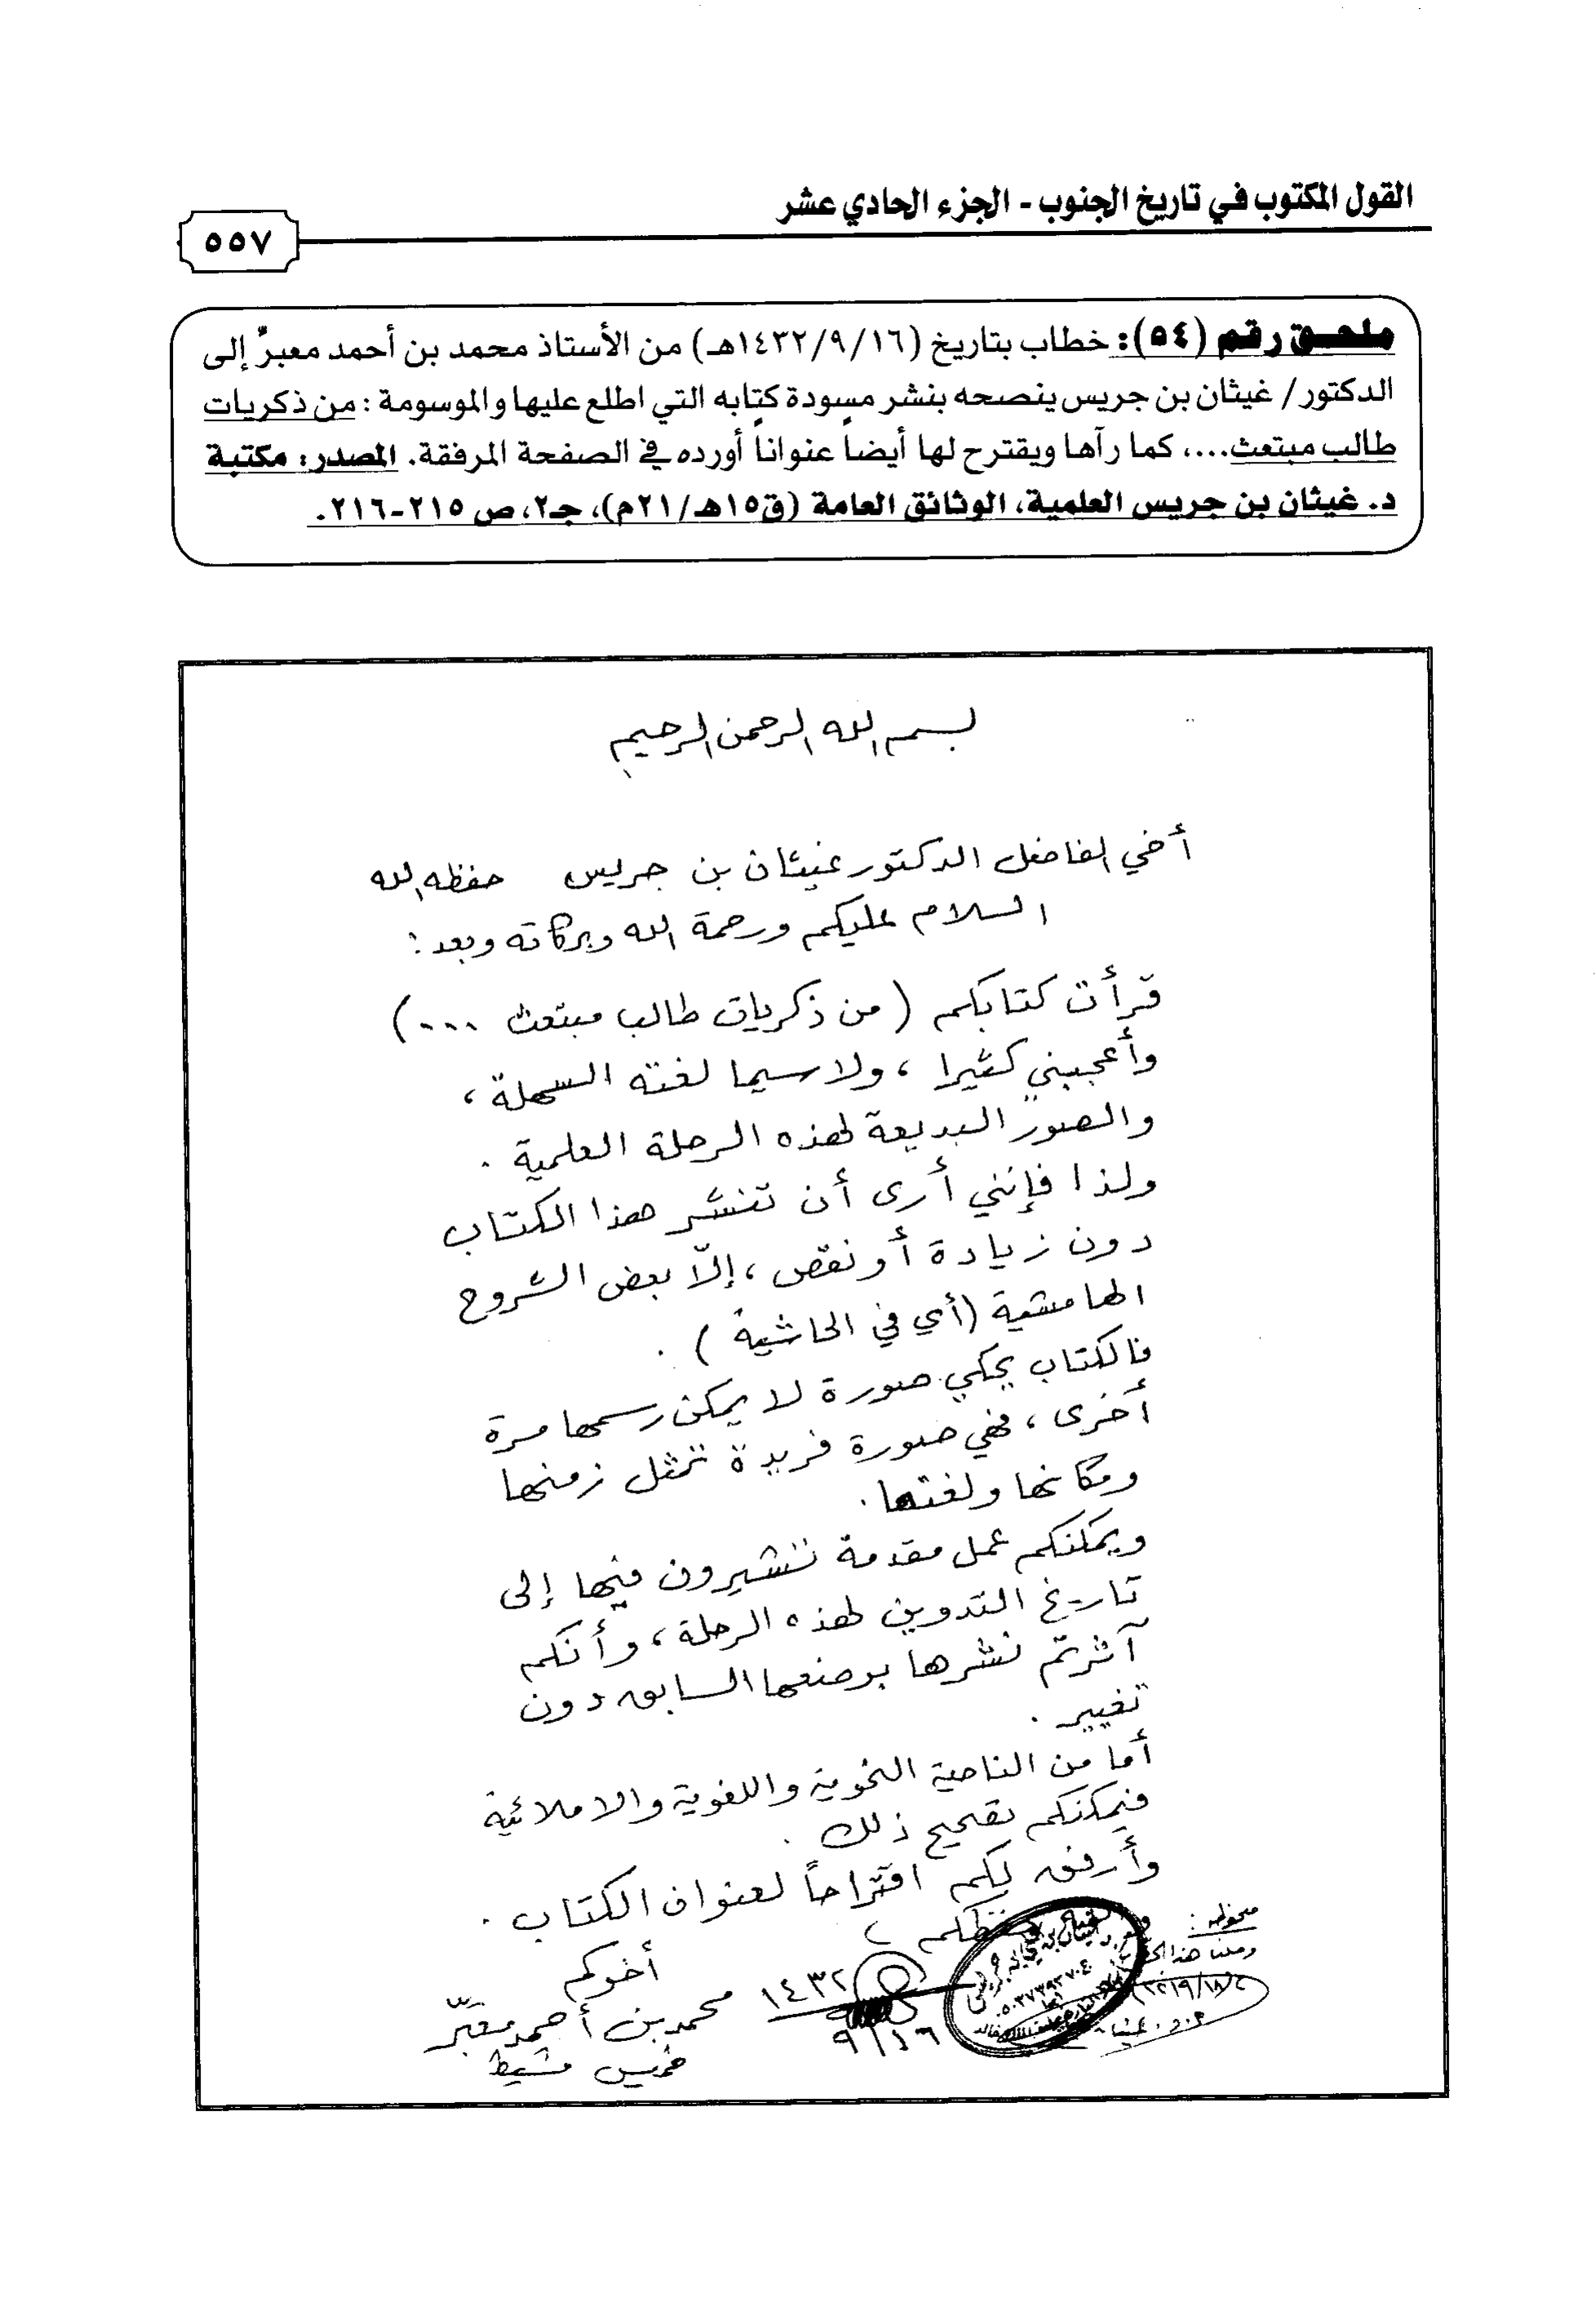 القول المكتوب في تاريخ الجنوب - الجزء الحادي عشر
٥٥٧
ملحـق رقم (٥٤): خطاب بتاريخ (١٤٣٢/٩/١٦هـ) من الأستاذ محمد بن أحمد معبرّ إلى
الدكتور/ غيثان بن جريس ينصحه بنشر مسودة كتابه التي اطلع عليها والموسومة : من ذكريات
طالب مبتعث....، كما رآها ويقترح لها أيضاً عنواناً أورده في الصفحة المرفقة. المصدر: مكتبة
د. غيثان بن جريس العلمية، الوثائق العامة (ق١٥هـ/٢١م)، جـ٢، ص ٢١٥-٢١٦.
بسم الله الرحمن الرحيم
أخي الفاضل الدكتور غيثان بن جريس حفظه الله
السلام عليكم ورحمة الله وبركاته وبعد :
قرأت كتابكم ( من ذكريات طالب مبتعث .... )
وأعجبني كثيرا ، ولاسيما لغته السهلة ،
والصور البديعة لهذه الرحلة العلمية .
ولذا فإنني أرى أن تنشر هذا الكتاب
دون زيادة أو نقص ، إلّا بعض الشروح
الهامشية (أي في الحاشية ) .
فالكتاب يحكي صورة لا يمكن رسمها مرة
أخرى ، فهي صورة فريدة تمثل زمنها
ومكانها ولغتها .
ويمكنكم عمل مقدمة تشيرون فيها إلى
تاريخ التدوين لهذه الرحلة ، وأنكم
آثرتم نشرها بوضعها السابق دون
تغيير .
أما من الناحية النحوية واللغوية والاملائية
فيمكنكم تصحيح ذلك .
وأرفق لكم اقتراحاً لعنوان الكتاب .
أخوكم
محمد بن أحمد معبّر
خميس مشيط
١٤٣٢
٩/١٦
ملحوظة :